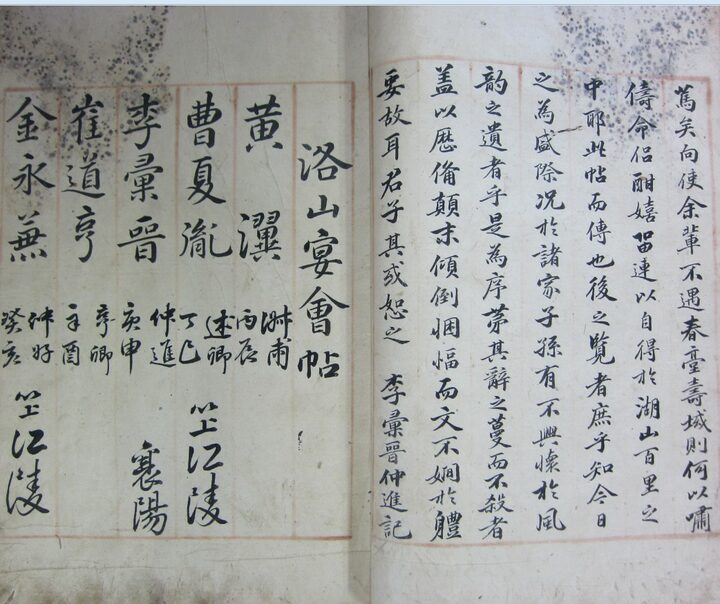 篤矣向使余輩不遇春臺壽域則何以嘯
儔命侶酣嬉留連以自得於湖山百里之
中耶此帖而傳也後之覽者庶乎知今日
之為盛際況於諸家子孫有不興懷於風
韵之遺者乎是為序第其辭之蔓而不殺者
盖以歷備顛末傾倒悃愊而文不嫺於軆
要故耳君子其或恕之 李彙晉仲進記
洛山宴會帖
黃瀷 甫 丙辰
曹夏胤 述卿 丁巳 並江陵
李彙晉 仲進 庚申 襄陽
崔道亨 亨卿 辛酉
金永蕪 仲好 癸亥 並江陵